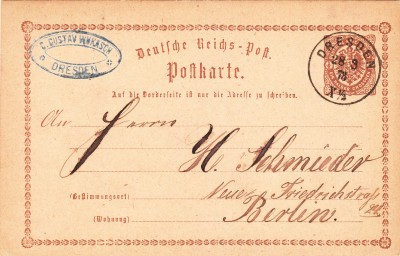 C. GUSTAV WNKASCH
DRESDEN
Deutsche Reichs-Post.
Postkarte.
DRESDEN
28 3
Auf die Vorderseite ist nur die Adresse zu schreiben.
An Herrn
H. Schmieder
Neue Friedrichstraße
(Bestimmungsort)
Berlin.
(Wohnung)